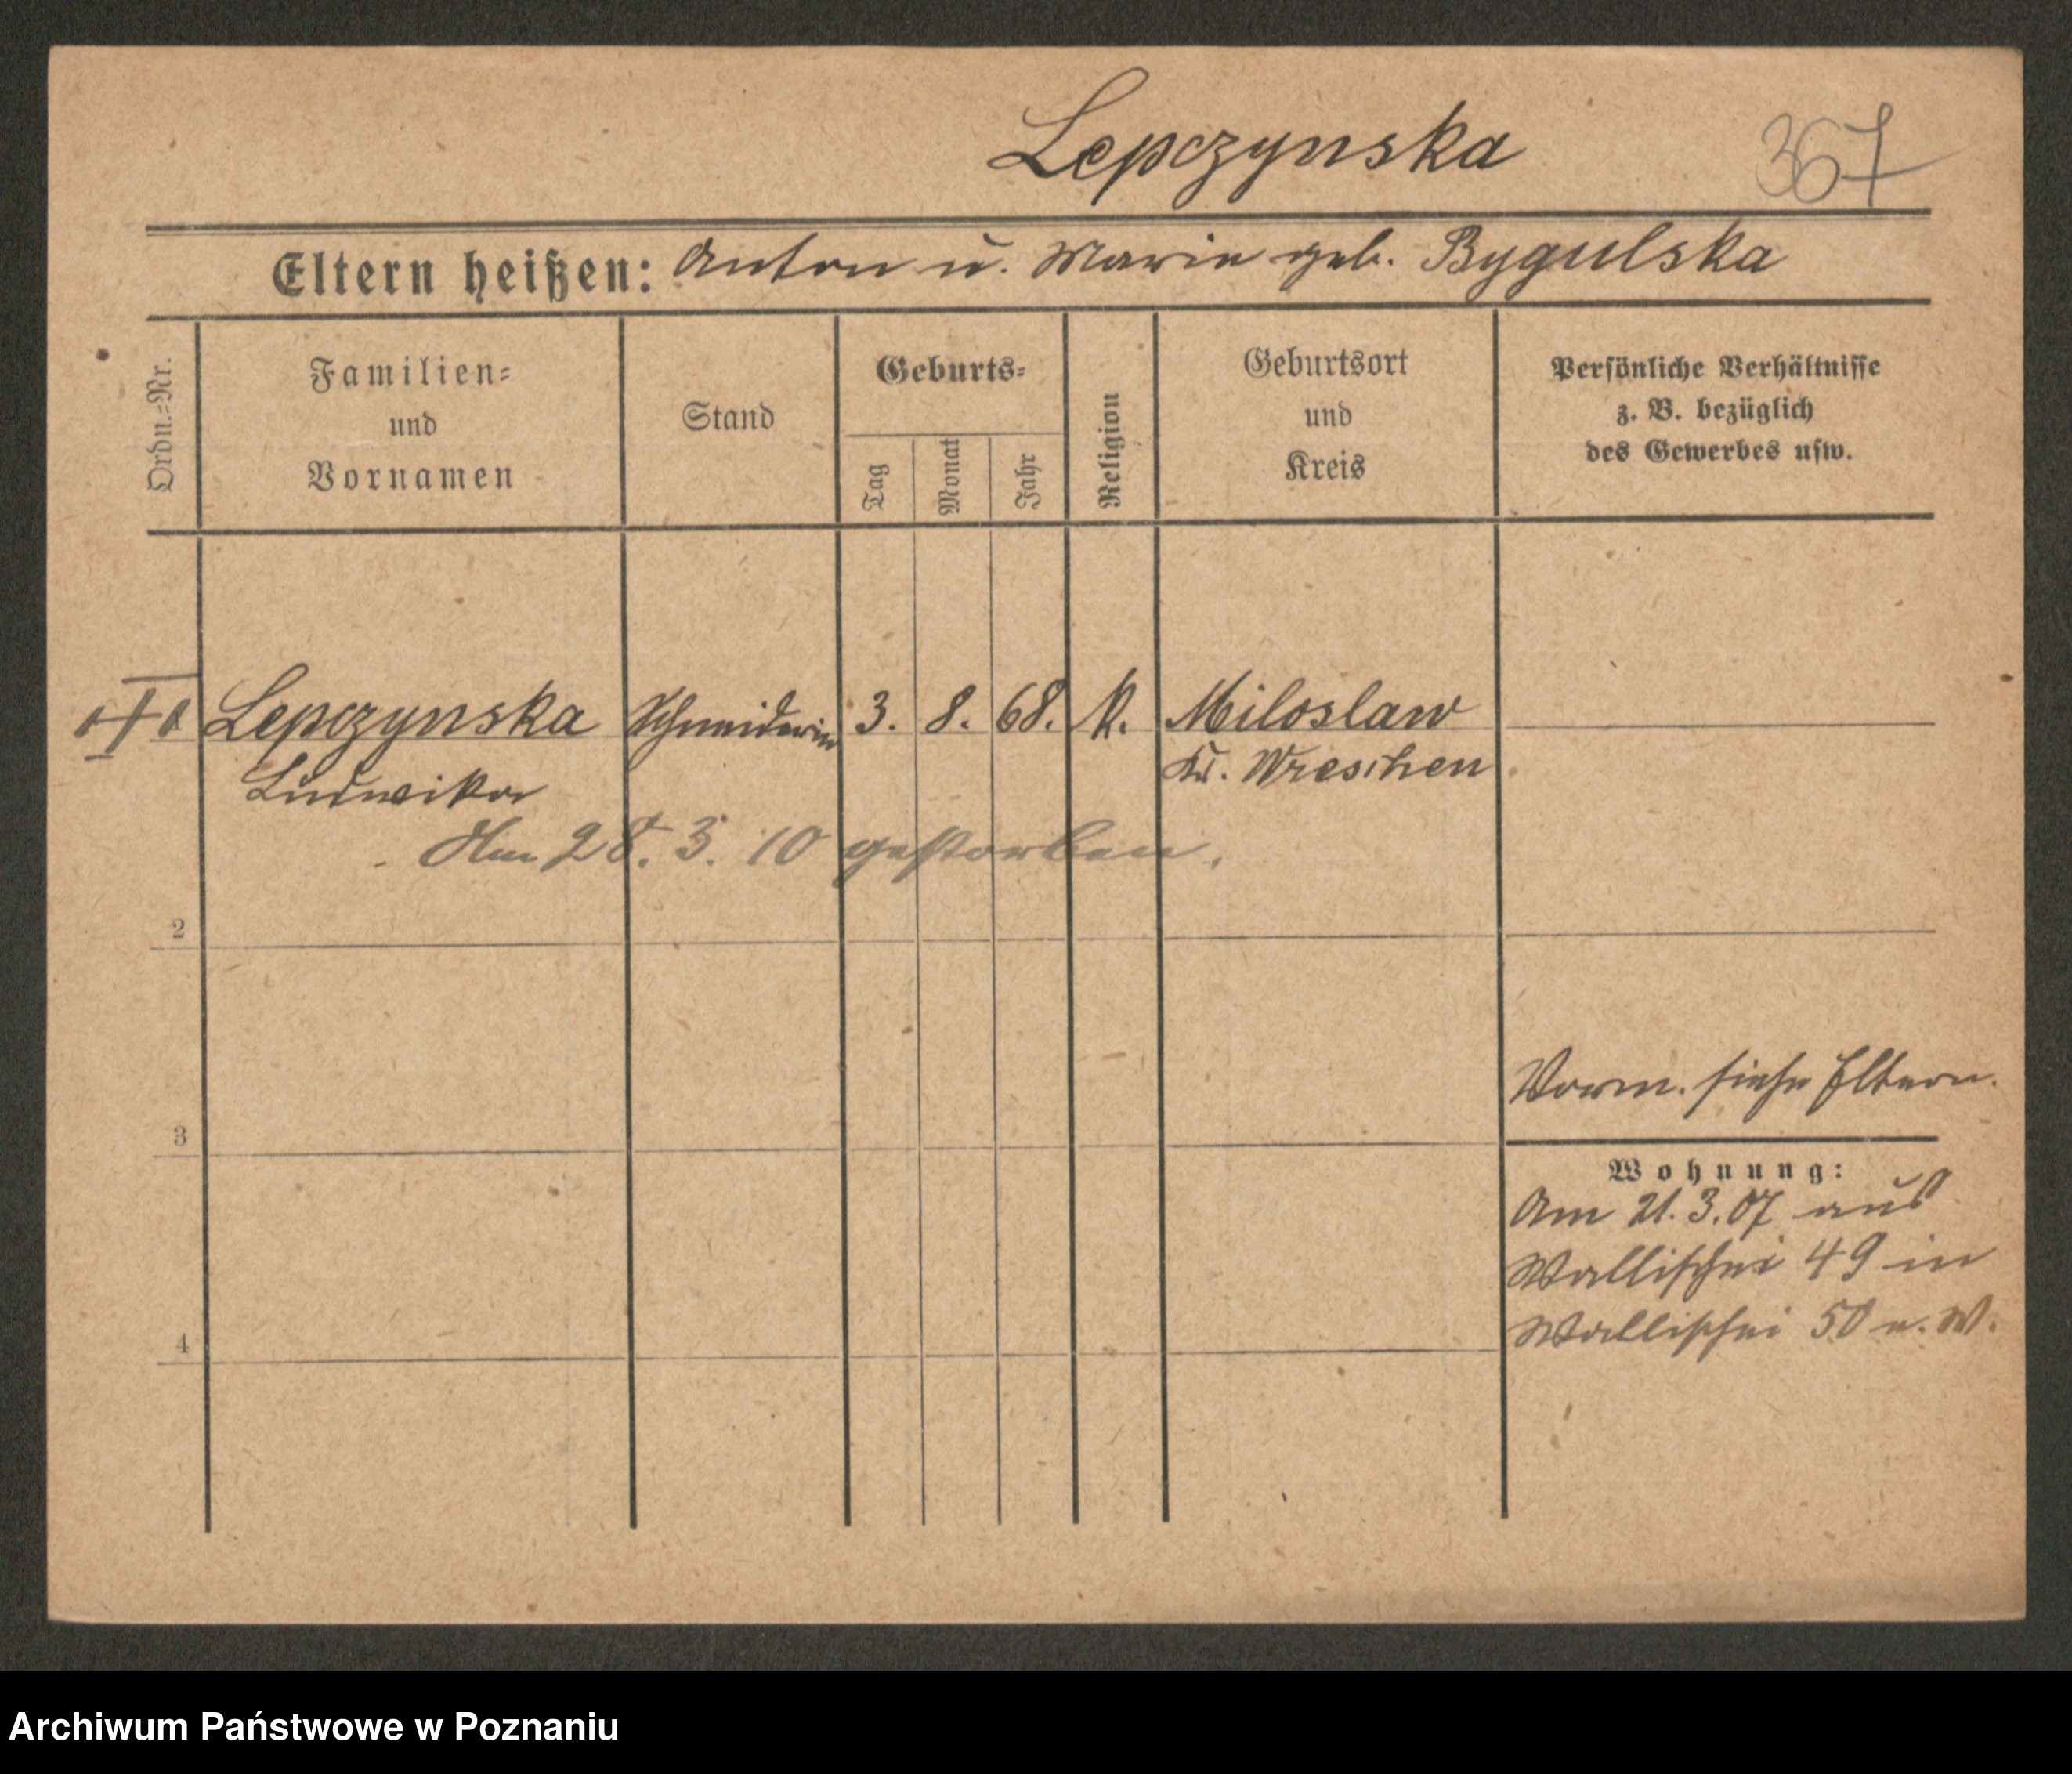 Lepczynska
367
Eltern heißen: Anton u. Marie geb. Bygulska
Ordn.-Nr.
Familien-
und
Vornamen
Stand
Geburts-
Tag
Monat
Jahr
Religion
Geburtsort
und
Kreis
Persönliche Verhältnisse
z. B. bezüglich
des Gewerbes usw.
Lepczynska Schneiderin 3. 8. 68. K. Miloslaw
Ludwika Kr. Wreschen
Am 28. 3. 10 gestorben.
2
Vorm. siehe Eltern.
3
Wohnung:
Am 21.3.07 aus
Wallischei 49 in
Wallischei 50 n. W.
4
Archiwum Państwowe w Poznaniu